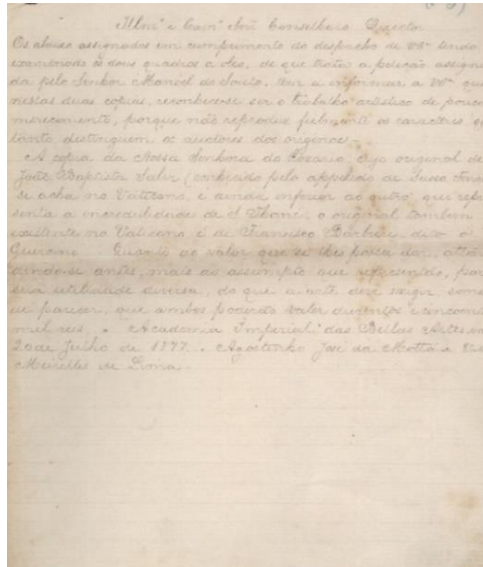 Illmº e Exmº Snr Conselheiro Director
Os abaixo assignados em cumprimento do despacho de Vª Exª tendo
examinado os dous quadros a oleo, de que trata a petição assigna
da pelo Senhor Manoel de Souto, tem a informar a Vª Exª que
nestas duas copias, reconhece-se ser o trabalho artistico de pouco
merecimento, porque não reproduz fielmente os caracteres que
tanto destinguem os auctores dos originaes.
A copia da Nossa Senhora do Rosario cujo original de
João Baptista Salvi (conhecido pelo appellido de Sasso Ferrato
se acha no Vaticano, é ainda inferior ao outro que repre
senta a incredulidade de S. Thomé, o original tambem
existente no Vaticano é de Francisco Barbieri dito o
Guercino. Quanto ao valor que se lhes possa dar, atten
dendo-se antes, mais ao assumpto que representão, para
seria utilidade diversa, do que a arte deve exigir, somos
de parecer, que ambos poderão valer duzentos e cincoenta
mil reis. Academia Imperial das Bellas Artes, em
20 de Julho de 1877. Agostinho José da Motta e
Meirelles de Lima.